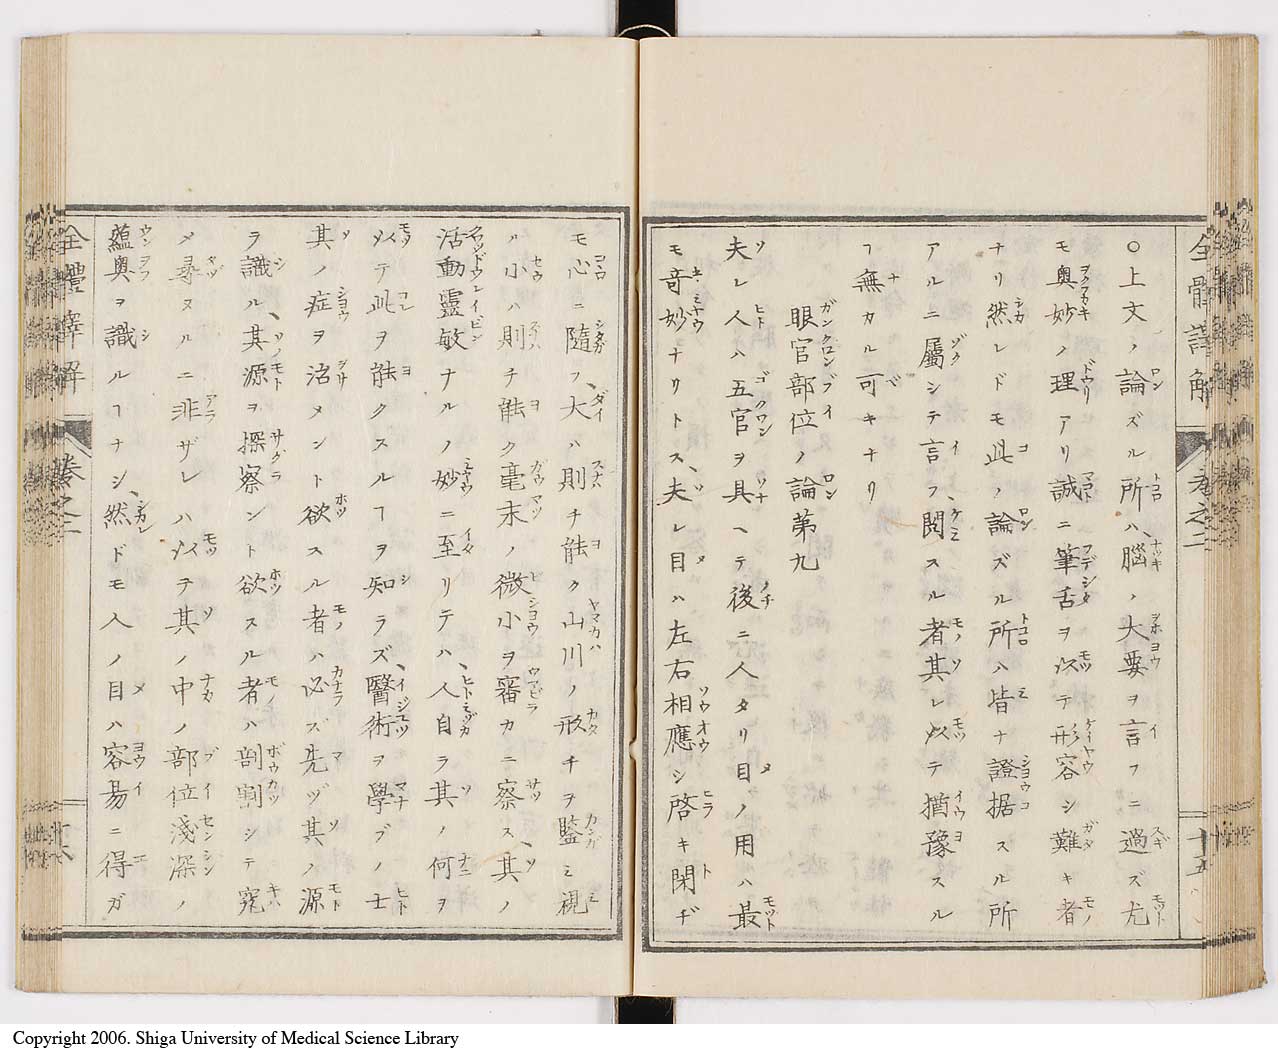 全體譯解 卷之二 十五
〇上文ノ論ズル所ハ腦ノ大要ヲ言フニ過ズ尤
モ奥妙ノ理アリ誠ニ筆舌ヲ以テ形容シ難キ者
ナリ然レドモ此ノ論ズル所ハ皆ナ證据スル所
アルニ屬シテ言フ閲スル者其レ以テ猶豫スル
ヿ無カル可キナリ
眼官部位ノ論第九
夫レ人ハ五官ヲ具ヘテ後ニ人タリ目ノ用ハ最
モ奇妙ナリトス、夫レ目ハ左右相應シ啓キ閉ヂ
モ心ニ隨フ、大ハ則チ能ク山川ノ形チヲ鑒ミ視
ル小ハ則チ能ク毫末ノ微小ヲ審カニ察ス、其ノ
活動靈敏ナルノ妙ニ至リテハ、人自ラ其ノ何ヲ
以テ此ヲ能クスルヿヲ知ラズ、醫術ヲ學ブノ士
其ノ症ヲ治メント欲スル者ハ必ズ先ヅ其ノ源
ヲ識ル、其源ヲ探察ント欲スル者ハ剖割シテ究
メ尋ヌルニ非ザレハ以テ其ノ中ノ部位淺深ノ
蘊奥ヲ識ルヿナシ、然ドモ人ノ目ハ容易ニ得ガ
全體譯解 卷之二